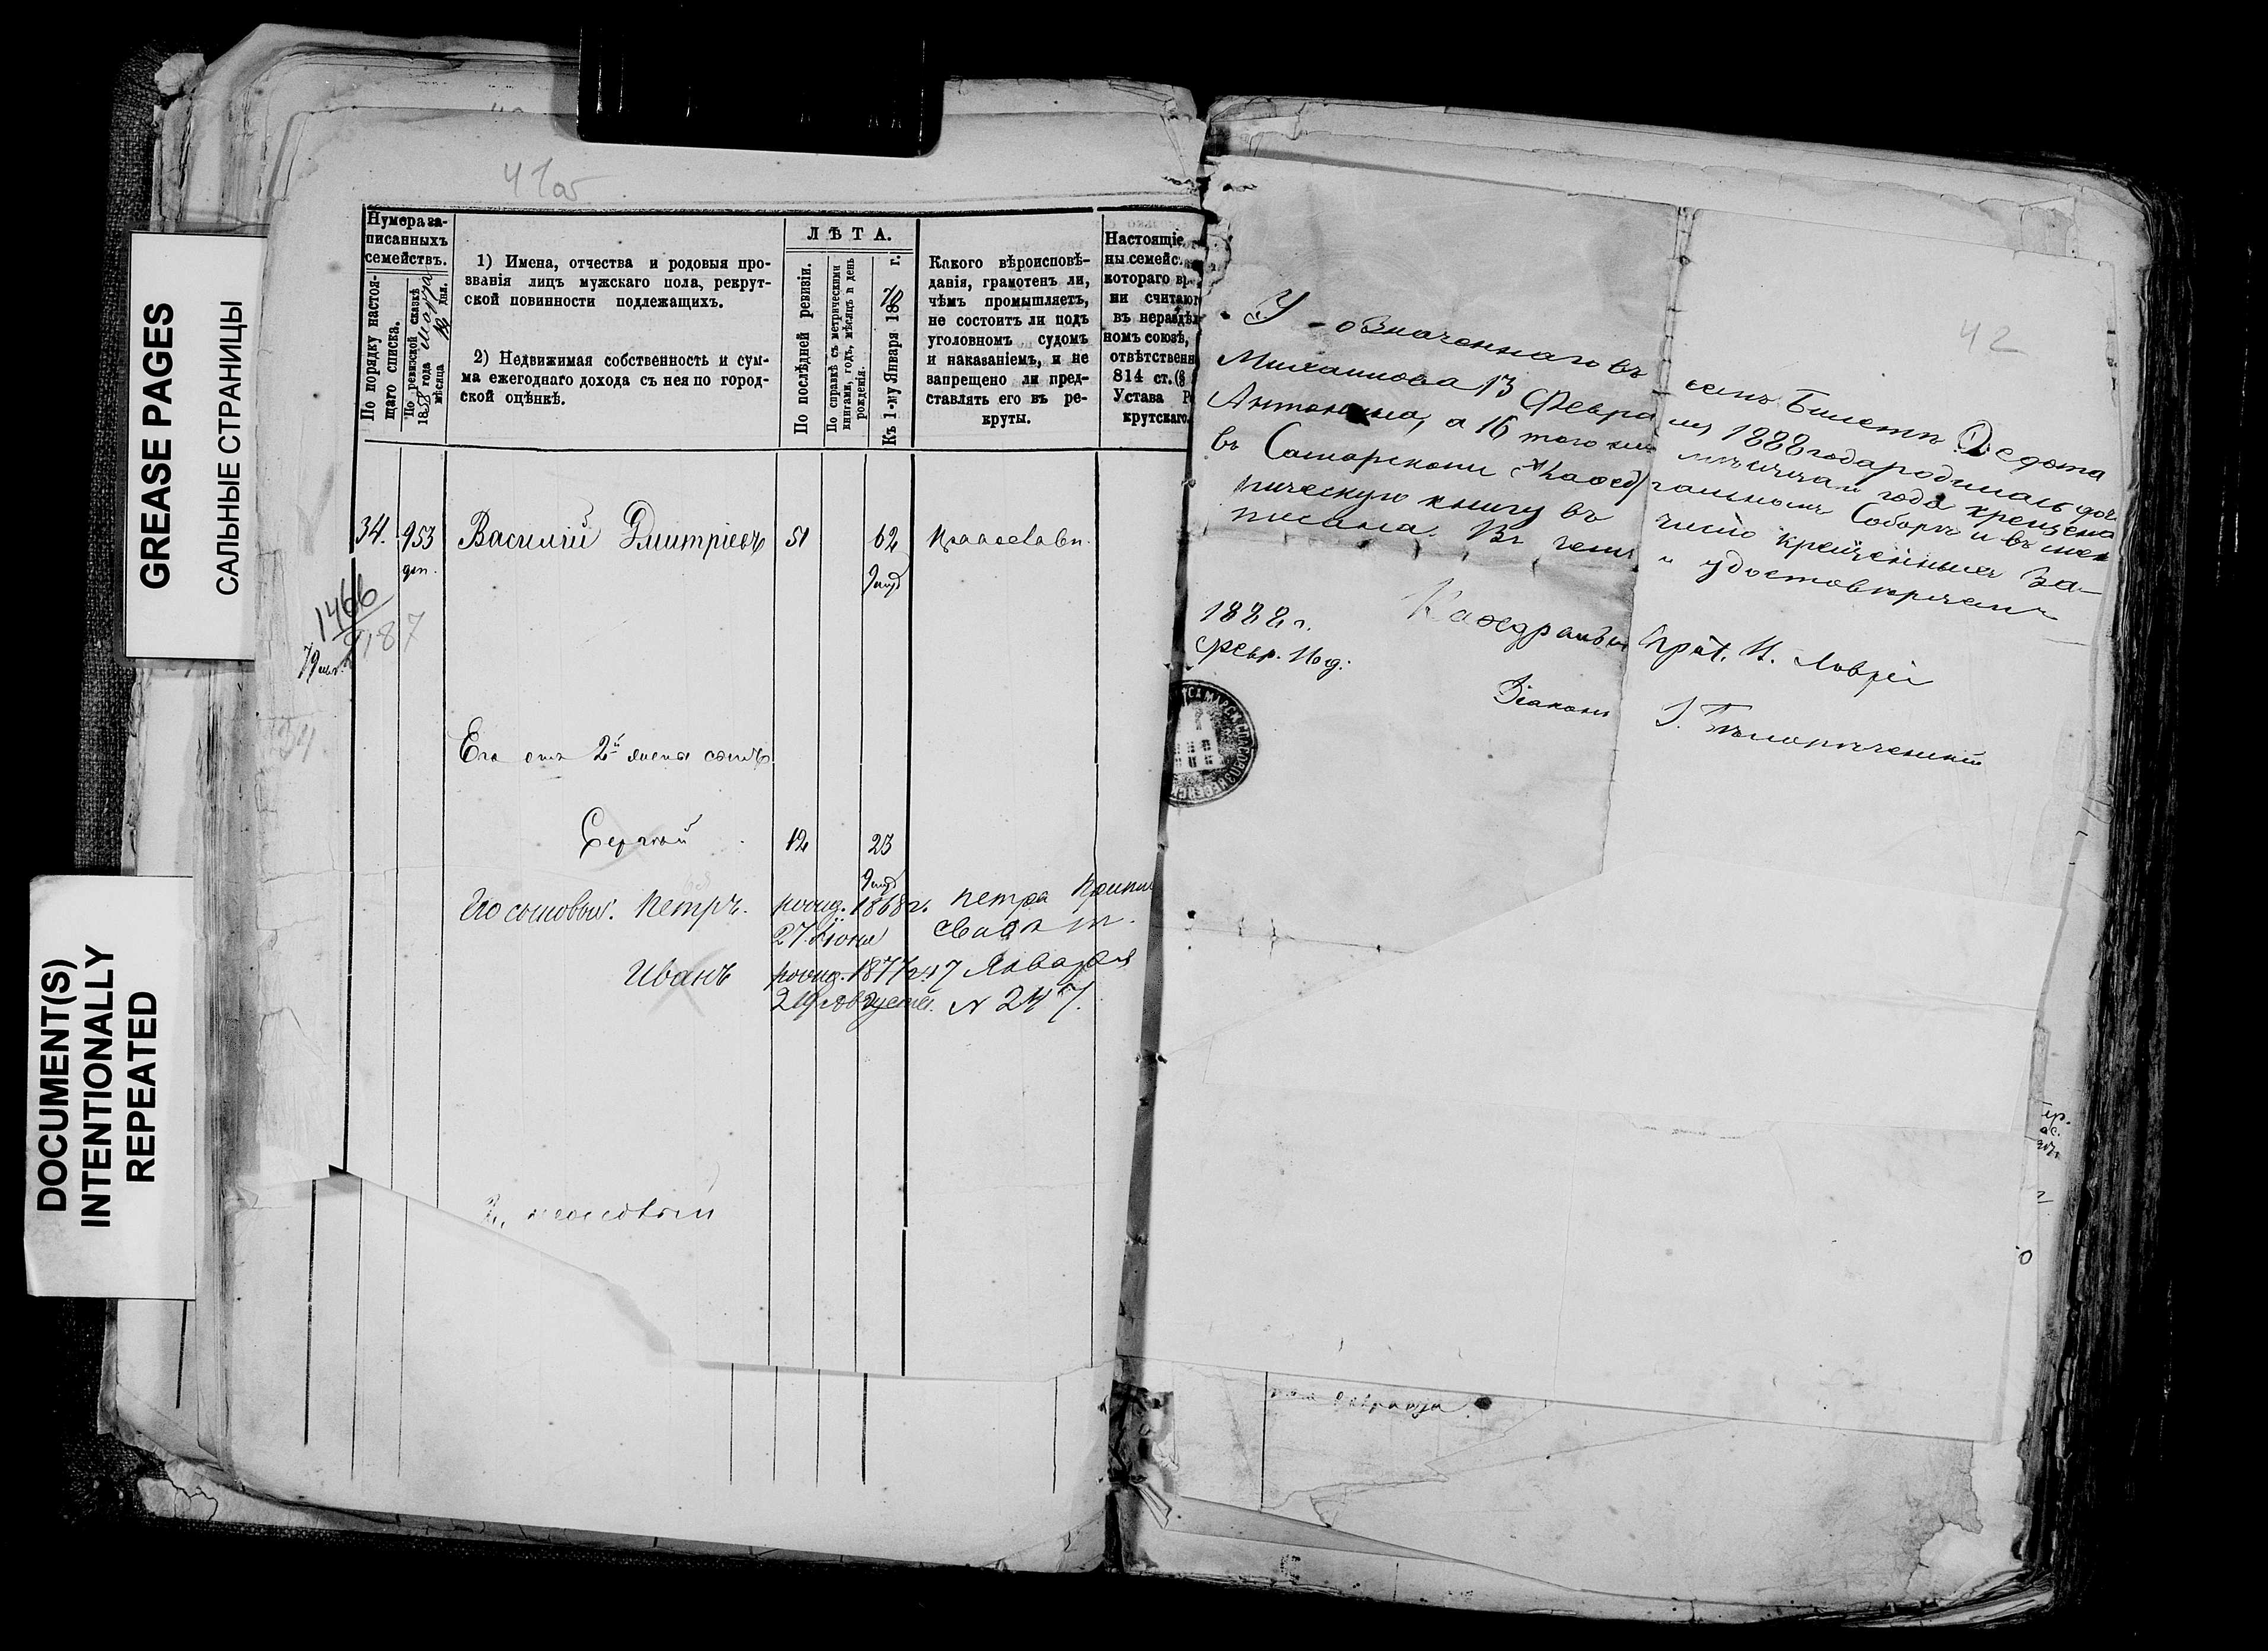 GREASE PAGES
САЛЬНЫЕ СТРАНИЦЫ
DOCUMENT(S)
INTENTIONALLY
REPEATED
41об
Нумера за-
писанныхъ
семействъ.
По порядку настоя-
щаго списка.
По ревизской сказкѣ
1858 года Марта
мѣсяца 12 дня.
1) Имена, отчества и родовыя про-
званія лицъ мужскаго пола, рекрут-
ской повинности подлежащихъ.
2) Недвижимая собственность и сум-
ма ежегоднаго дохода съ нея по город-
ской оцѣнкѣ.
ЛѢТА.
По послѣдней ревизіи.
По справкѣ съ метрическими
книгами, годъ, мѣсяцъ и день
рожденія.
Къ 1-му Января 1870 г.
Какого вѣроисповѣ-
данія, грамотенъ ли,
чѣмъ промышляетъ,
не состоитъ ли подъ
уголовномъ судомъ
и наказаніемъ, и не
запрещено ли пред-
ставлять его въ ре-
круты.
Настоящіе
ны семейс
котораго вр
ни считаю
въ нераздѣл
номъ союзѣ,
отвѣтственн
814 ст. (§
Устава Р
крутскаго.
34. 953 Василій Дмитріевъ 51 62 православн.
1466
9187
34
Его отъ 2й жены сынъ
Сергѣй 12 23
Его сыновья: Петръ. рожд. 1868 г. Петра
27 Іюня
Иванъ рожд. 1877 г. 17 Января
29 Августа. N 247.
42
У означеннаго въ семъ Билетѣ Федота
Михайлова 13 Февраля 1888 года родилась дочь
Антонина, а 16 того же мѣсяца и года крещена
въ Самарскомъ Каѳедральномъ Соборѣ и въ мет
рическую книгу въ число крещенныхъ за-
писана. Въ чемъ и удостовѣряемъ
1888 г.
Февр. 16 д.
Каѳедральн Прот. И.
Діаконъ І.